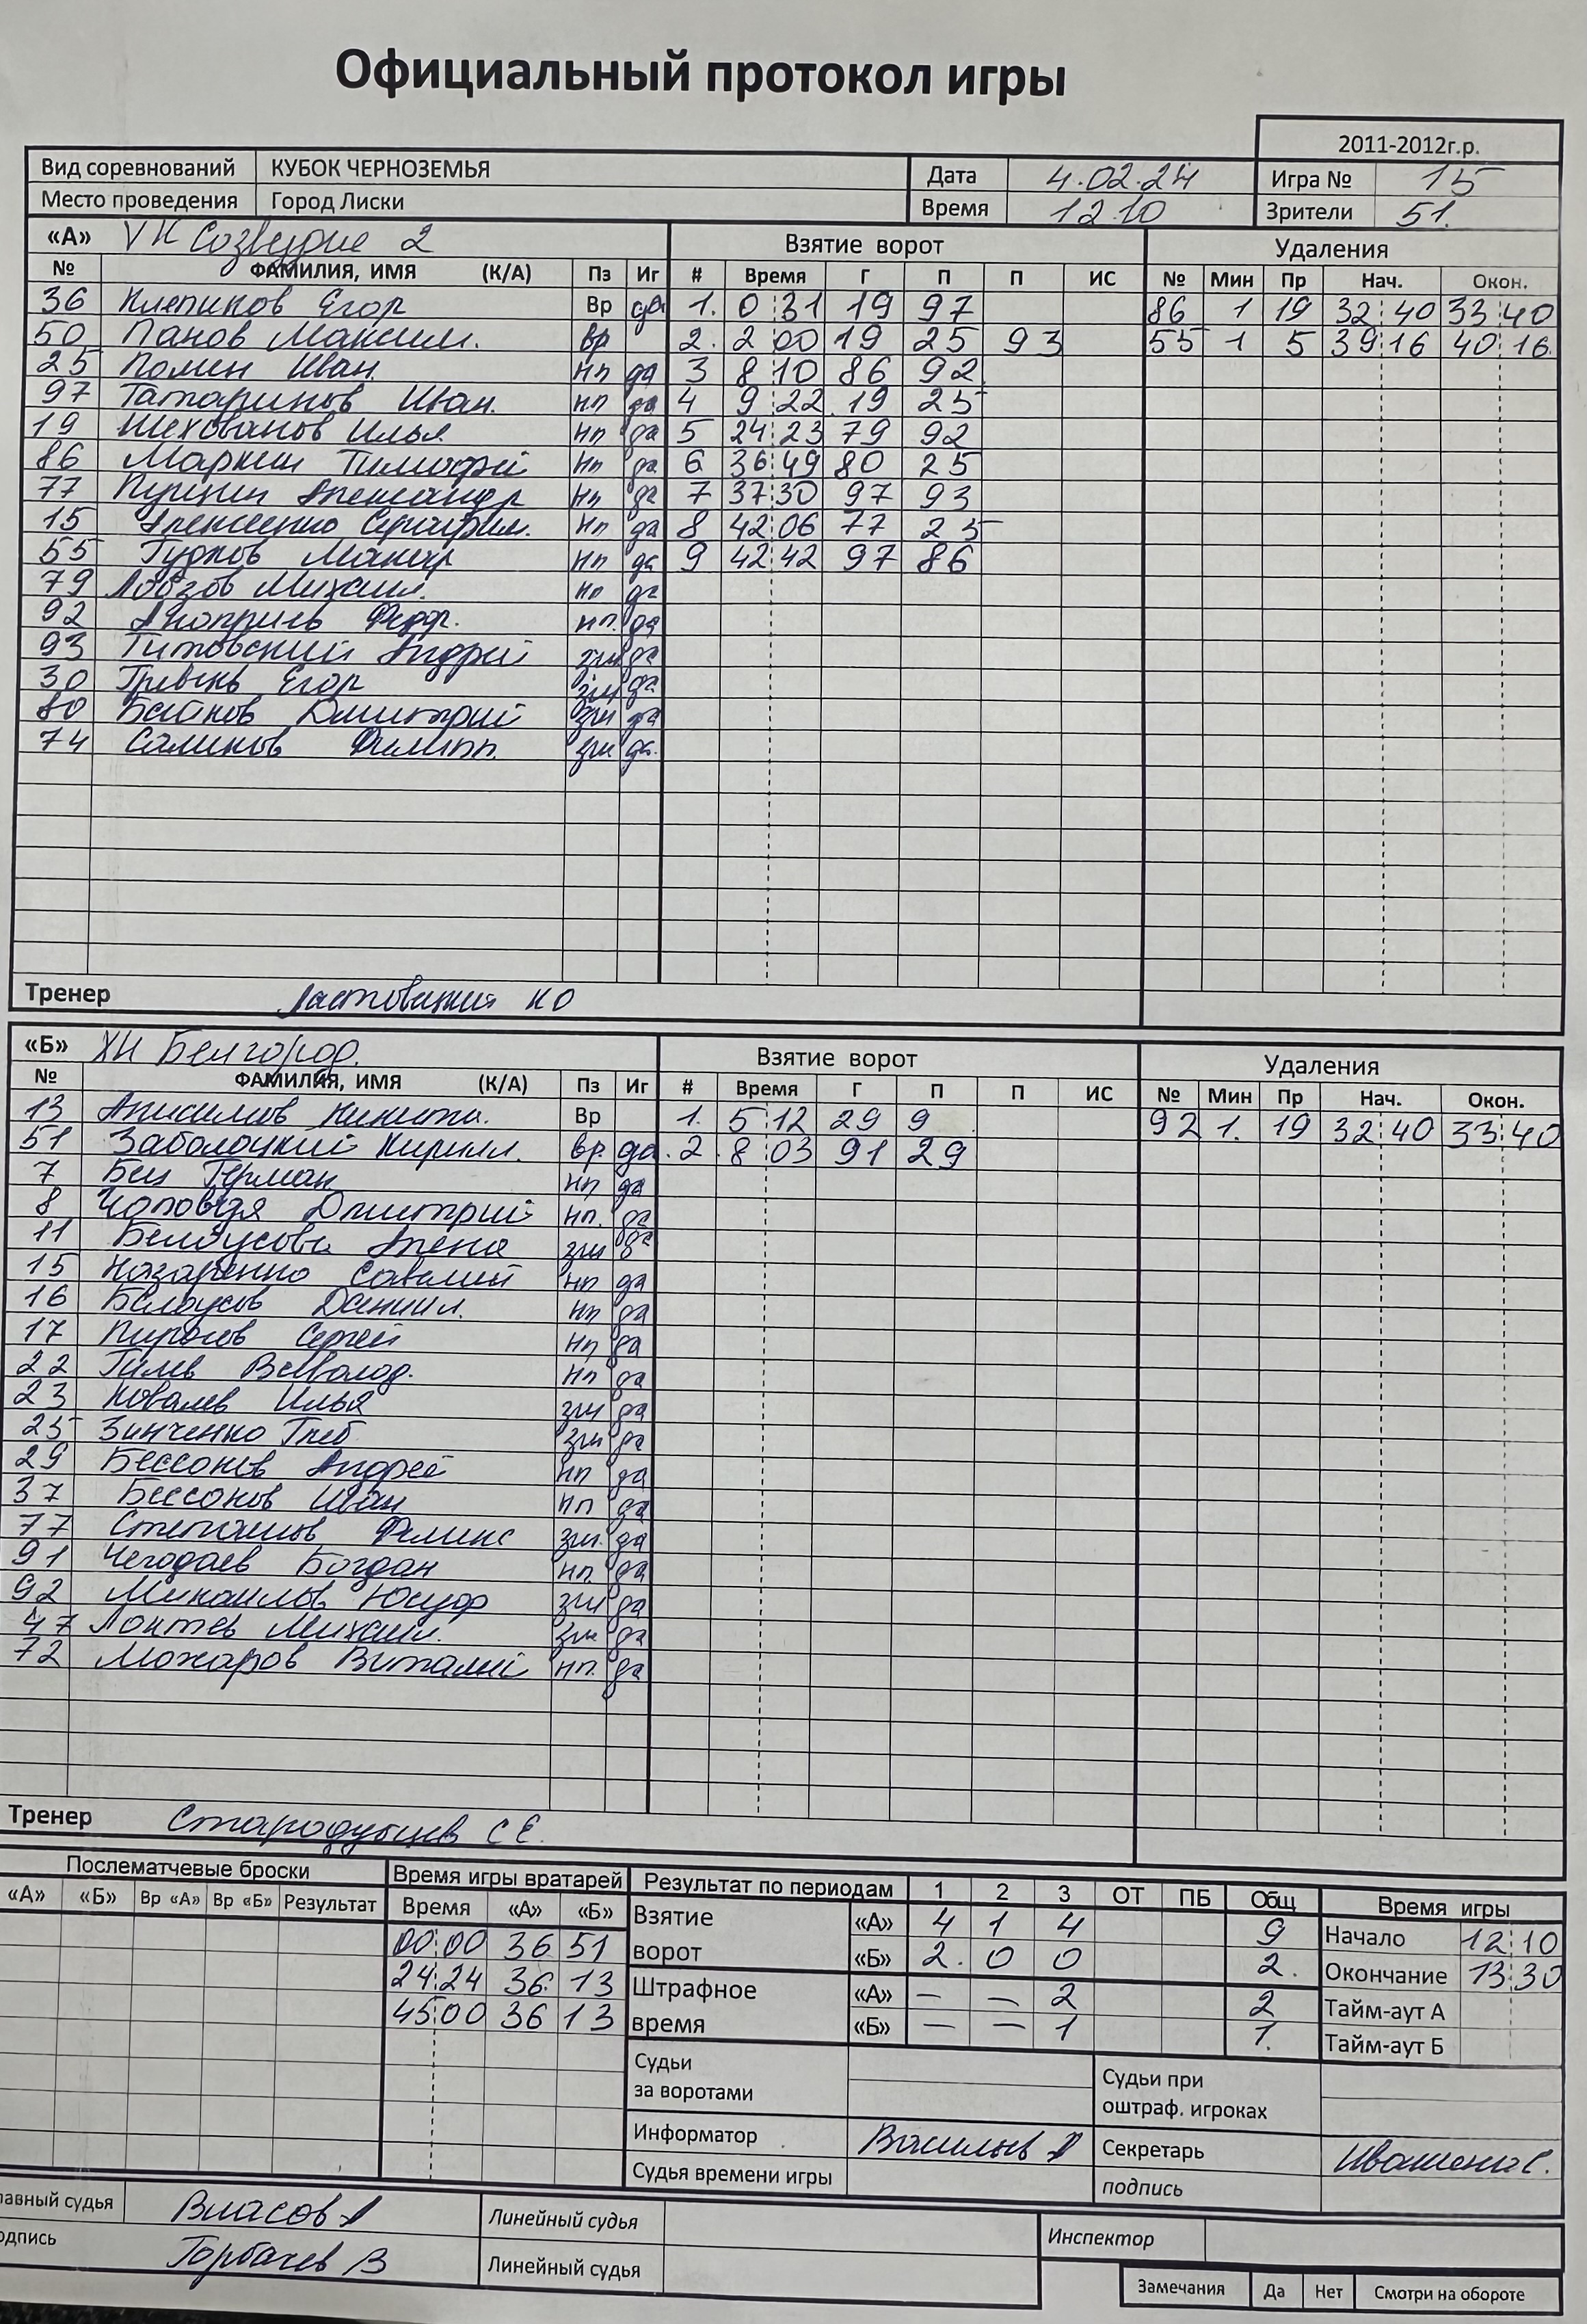 Официальный протокол игры
2011-2012г.р.
Вид соревнований КУБОК ЧЕРНОЗЕМЬЯ Дата 4.02.24 Игра № 15
Место проведения Город Лиски Время 12 10 Зрители 51.
«А» Созвездие 2 Взятие ворот Удаления
№ ФАМИЛИЯ, ИМЯ (К/А) Пз Иг # Время Г П П ИС № Мин Пр Нач. Окон.
36 Клепиков Егор Вр да 1. 0 31 19 97 86 1 19 32:40 33:40
50 Панов Максим. вр 2. 2 00 19 25 93 55 1 5 39 16 40 16.
25 Иван нп да 3 8 10 86 92
97 Татаринов Иван. нп да 4 9 22 19 25
19 Шехованов Илья нп да 5 24 23 79 92
86 Маркин Тимофей нп да 6 36 49 80 25
77 Александр нп да 7 37 30 97 93
15 Алексеенко Серафим. нп да 8 42 06 77 25
55 Гудков Макар нп да 9 42 42 97 86
79 Михаил. нп да
92 нп. да
93 Титовский Андрей зщ да
30 Гривень Егор зщ да
80 Дмитрий зщ да
74 Саликов Филипп. зщ да.
Тренер
«Б» ХК Белгород. Взятие ворот Удаления
№ ФАМИЛИЯ, ИМЯ (К/А) Пз Иг # Время Г П П ИС № Мин Пр Нач. Окон.
13 Анисимов Никита. Вр 1. 5 12 29 9 92 1. 19 32:40 33:40
51 Заболоцкий Кирилл. вр. да. 2. 8 03 91 29
7 Бец Герман нп да
8 Дмитрий нп. да
11 Белоусова Алена зщ да
15 Назаренко Савелий нп да
16 Белоусов Даниил. нп да
17 Пирогов Сергей нп да
22 Гилев Всеволод. нп да
23 Ковалев Илья зщ да
25 Зинченко Глеб зщ да
29 Бессонов Андрей нп да
37 Бессонов Иван нп да
77 Степанов Феликс зщ. да
91 Чегодаев Богдан нп. да
92 Михаилов Юсуф зщ да
47 Локтев Михаил. зщ да
72 Можаров Виталий нп. да
Тренер Стародубцев С Е.
Послематчевые броски Время игры вратарей Результат по периодам 1 2 3 ОТ ПБ Общ Время игры
«А» «Б» Вр «А» Вр «Б» Результат Время «А» «Б» Взятие ворот «А» 4 1 4 9 Начало 12:10
00:00 36 51 «Б» 2. 0 0 2. Окончание 13:30
24:24 36. 13 Штрафное время «А» — — 2 2 Тайм-аут А
45:00 36 13 «Б» — — 1 1. Тайм-аут Б
Судьи за воротами Судьи при оштраф. игроках
Информатор Васильев Секретарь
Судья времени игры подпись
лавный судья Власов Линейный судья Инспектор
одпись Горбачев В Линейный судья
Замечания Да Нет Смотри на обороте